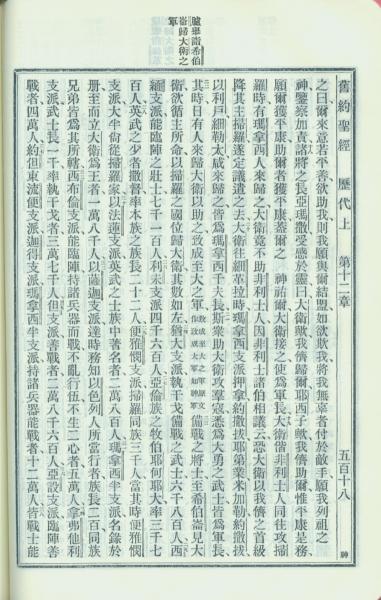 舊約聖經 歷代上 第十二章 五百十八 神
臚舉詣希伯
崙歸大衛之
軍
之曰爾來意若平善欲助我則我願與爾結盟如欲欺我將我無辜者付於敵手願我列祖之
神鑒察加責諸將之長亞瑪撒受感於靈曰大衛歟我儕歸爾耶西子歟我儕助爾惟平康是務、
願爾獲平康助爾者獲平康蓋爾之 神祐爾大衛接之使爲軍長大衛偕非利士人同往攻掃
羅時有瑪拿西人來歸之大衛竟不助非利士人因非利士諸伯相議云恐大衛以我儕之首級
降其主掃羅遂定議遣之去大衛往細革拉時瑪拿西支派押拿約撒拔耶第業米加勒約撒拔
以利戶細勒太咸來歸之皆爲瑪拿西千夫長斯衆助大衛攻羣寇悉爲大勇之武士皆爲軍長
其時日有人來歸大衛以助之致成至大之軍致成至大之軍原文作致成大軍如神軍備戰之將士至希伯崙見大
衛欲循主所命以掃羅之國位歸大衛其數如左猶大支派執干戈備戰之武士六千八百人西
緬支派能臨陣之壯士七千一百人利未支派四千六百人亞倫族之牧伯耶何耶大率三千七
百人英武之少者撒督率本族之族長二十二人便雅憫支派掃羅同族三千人當其時便雅憫
支派大半尙從掃羅家以法蓮支派英武之士族中著名者二萬八百人瑪拿西半支派名錄於
册至而立大衛爲王者一萬八千人以薩迦支派達時務知以色列人所當行者族長二百同族
兄弟皆爲其所轄西布倫支派能臨陣持諸兵器而戰不亂行伍不生二心者五萬人拿弗他利
支派武士長一千率執干戈者三萬七千人但支派善戰者二萬八千六百人亞設支派能臨陣善
戰者四萬人約但東流便支派迦得支派瑪拿西半支派持諸兵器能戰者十二萬人皆戰士能